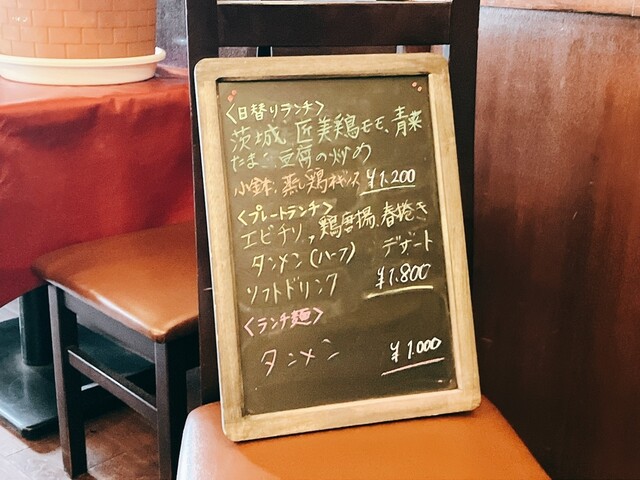 〈日替りランチ〉
茨城、匠美鶏モモ、青菜
たまご豆腐の炒め
小鉢、蒸し鶏ネギソース ¥1.200
〈プレートランチ〉
エビチリ、鶏唐揚、春捲き
タンメン(ハーフ) デザート
ソフトドリンク ¥1.800
〈ランチ麺〉
タンメン ¥1.000